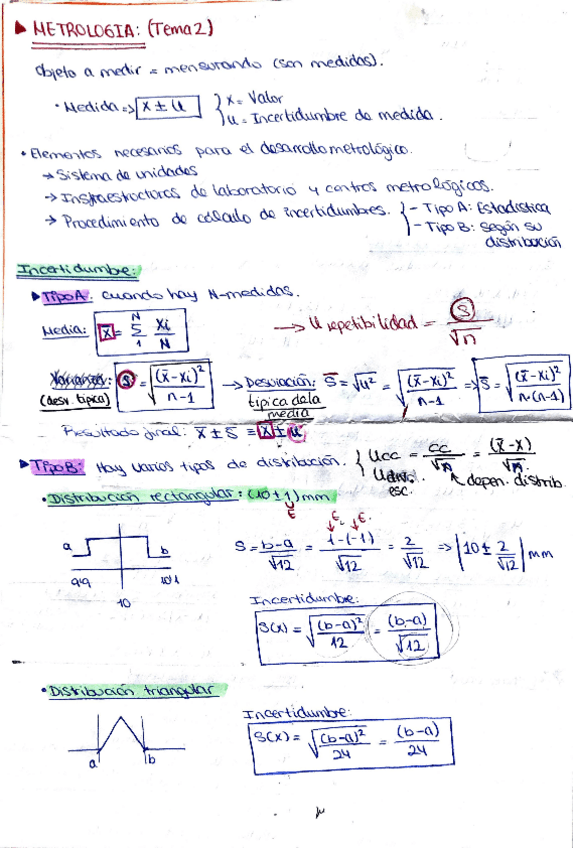 ▶ METROLOGIA: (Tema 2)
Objeto a medir = mensurando (son medidas).
• Medida => x ± u { x = Valor
u = Incertidumbre de medida.
• Elementos necesarios para el desarrollo metrológico.
→ Sistema de unidades
→ Infraestructuras de laboratorio y centros metrológicos.
→ Procedimiento de cálculo de incertidumbres. { - Tipo A: Estadística
- Tipo B: Según su
distribución
Incertidumbre:
▶ Tipo A: cuando hay N-medidas.
Media: x̄ = Σ₁ᴺ xi/N → U repetibilidad = S/√n
Varianza: (desv. típica) S = √((x̄-xi)²/n-1) → Desviación típica de la media: S̄ = √u² = √((x̄-xi)²/n-1) => S̄ = √((x̄-xi)²/n·(n-1))
Resultado final: x̄ ± S̄ = x ± u
▶ Tipo B: Hay varios tipos de distribución. { Ucc = cc/√n = (x̄-x)/√n
Udiv. esc. ↖ depen. distrib.
• Distribución rectangular: (10 ± 1) mm
ε
ε. ε.
a b S = b-a/√12 = 1-(-1)/√12 = 2/√12 => |10 ± 2/√12| mm
9'9 10'1
10
Incertidumbre:
S(x) = √((b-a)²/12) = (b-a)/√12
• Distribución triangular
Incertidumbre:
a b S(x) = √((b-a)²/24) = (b-a)/24